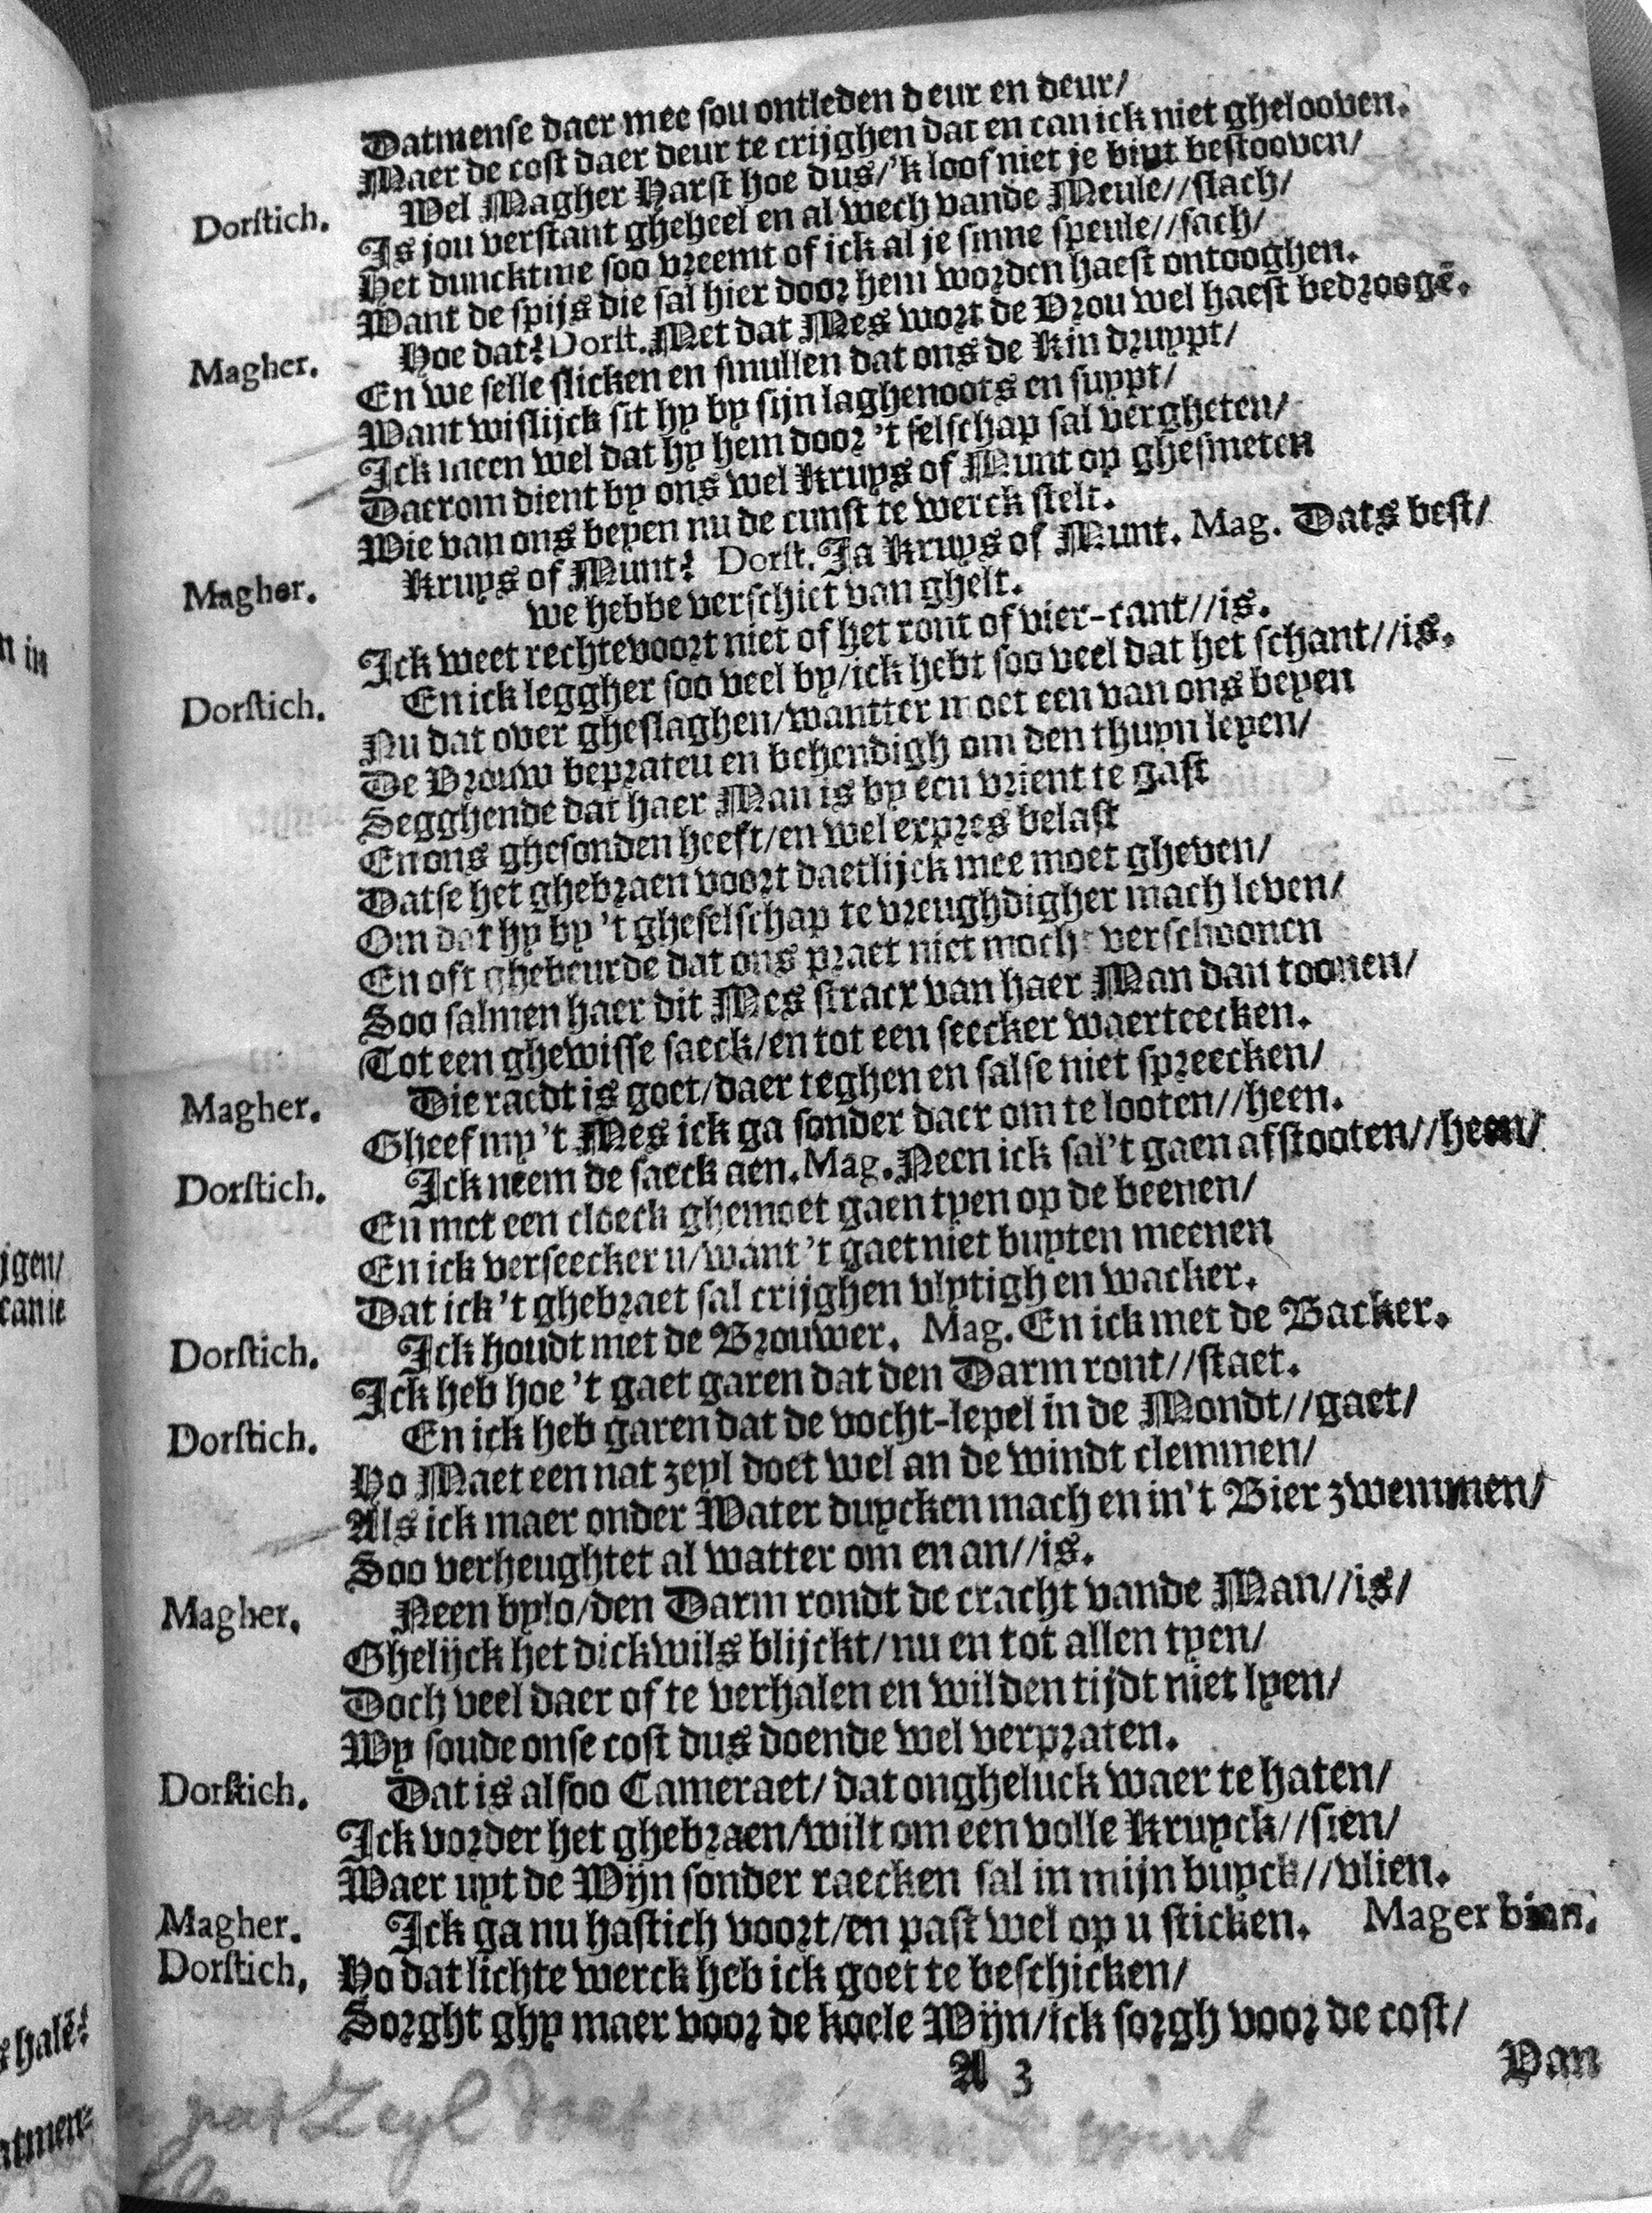 Datmense daer mee sou ontleden deur en deur/
Maer de cost daer deur te crijghen dat en can ick niet ghelooven.
Dorstich. Wel Magher Harst hoe dus/'k loof niet je bint bestooven/
Is jou verstant gheheel en al wech vande Meule//slach/
Het duncktme soo vreemt of ick al je sinne speule//sach/
Want de spijs die sal hier door hem worden haest ontooghen.
Magher. Hoe dat? Dorst. Met dat Mes wort de Vrou wel haest bedroogē.
En we selle slicken en smullen dat ons de Kin druypt/
Want wislijck sit hy by sijn laghenoots en suypt/
Ick meen wel dat hy hem door 't selschap sal vergheten/
Daerom dient by ons wel Kruys of Munt op ghesmeten
Wie van ons beyen nu de cunst te werck stelt.
Magher. Kruys of Munt? Dorst. Ja Kruys of Munt. Mag. Dats best/
we hebbe verschiet van ghelt.
Ick weet rechtevoort niet of het ront of vier-cant//is.
Dorstich. En ick leggher soo veel by/ick hebt soo veel dat het schant//is.
Nu dat over gheslaghen/wantter moet een van ons beyen
De Vrouw bepraten en behendigh om den thuyn leyen/
Segghende dat haer Man is by een vrient te gast
En ons ghesonden heeft/en wel expres belast
Datse het ghebraen voort daetlijck mee moet gheven/
Om dat hy by 't gheselschap te vreughdigher mach leven/
En oft ghebeurde dat ons praet niet mocht verschoonen
Soo salmen haer dit Mes stracx van haer Man dan toonen/
Tot een ghewisse saeck/en tot een seecker waerteecken.
Magher. Die raedt is goet/daer teghen en salse niet spreecken/
Gheef my 't Mes ick ga sonder daer om te looten//heen.
Dorstich. Ick neem de saeck aen. Mag. Neen ick sal't gaen afstooten//heen/
En met een cloeck ghemoet gaen tyen op de beenen/
En ick verseecker u/want 't gaet niet buyten meenen
Dat ick 't ghebraet sal crijghen vlytigh en wacker.
Dorstich. Ick houdt met de Brouwer. Mag. En ick met de Backer.
Ick heb hoe 't gaet garen dat den Darm ront//staet.
Dorstich. En ick heb garen dat de vocht-lepel in de Mondt//gaet/
Ho Maet een nat zeyl doet wel an de windt clemmen/
Als ick maer onder Water duycken mach en in't Bier zwemmen/
Soo verheughtet al watter om en an//is.
Magher. Neen bylo/den Darm rondt de cracht vande Man//is/
Ghelijck het dickwils blijckt/nu en tot allen tyen/
Doch veel daer of te verhalen en wil den tijdt niet lyen/
Wy soude onse cost dus doende wel verpraten.
Dorstich. Dat is alsoo Cameraet/dat ongheluck waer te haten/
Ick vorder het ghebraen/wilt om een volle Kruyck//sien/
Waer uyt de Wijn sonder raecken sal in mijn buyck//vlien.
Magher. Ick ga nu hastich voort/en past wel op u sticken. Mager binn.
Dorstich. Ho dat lichte werck heb ick goet te beschicken/
Sorght ghy maer voor de koele Wijn/ick sorgh voor de cost/
A 3
Van
nat Zeyl doet wel
n in
jgen/
can ic
halē?
atmen=